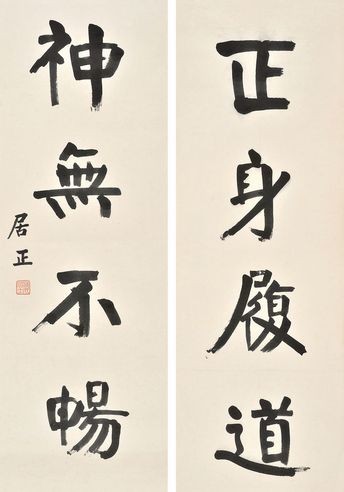 正身履道
神無不暢
居正